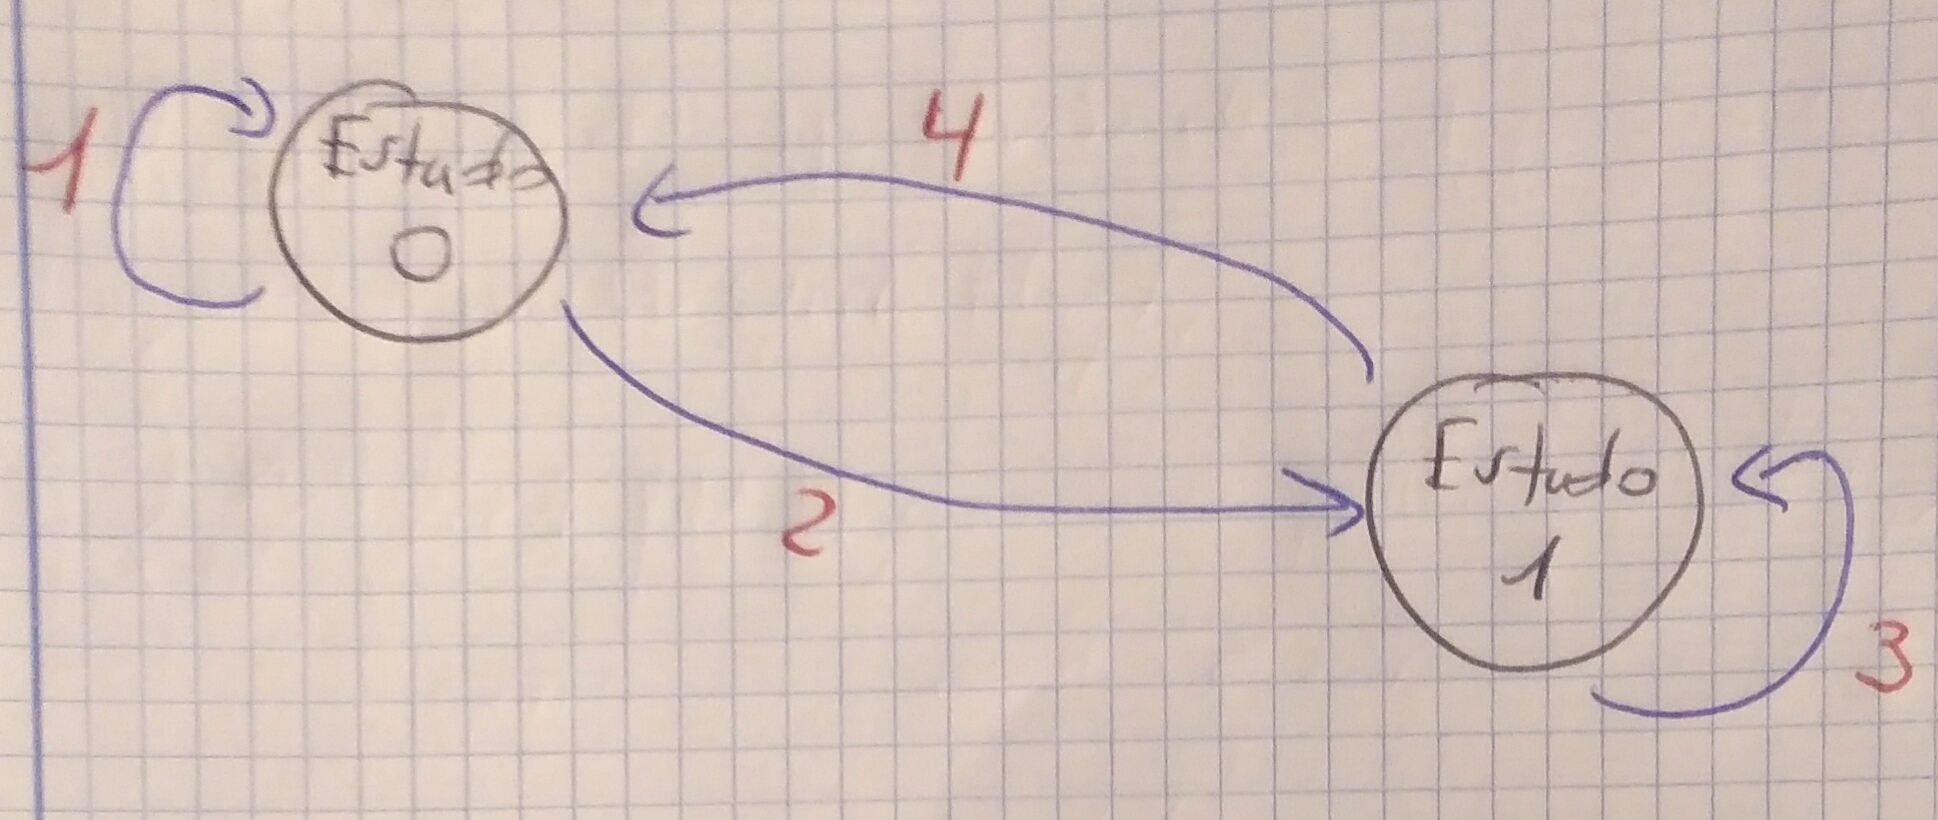 1
Estado
0
4
2
Estado
1
3